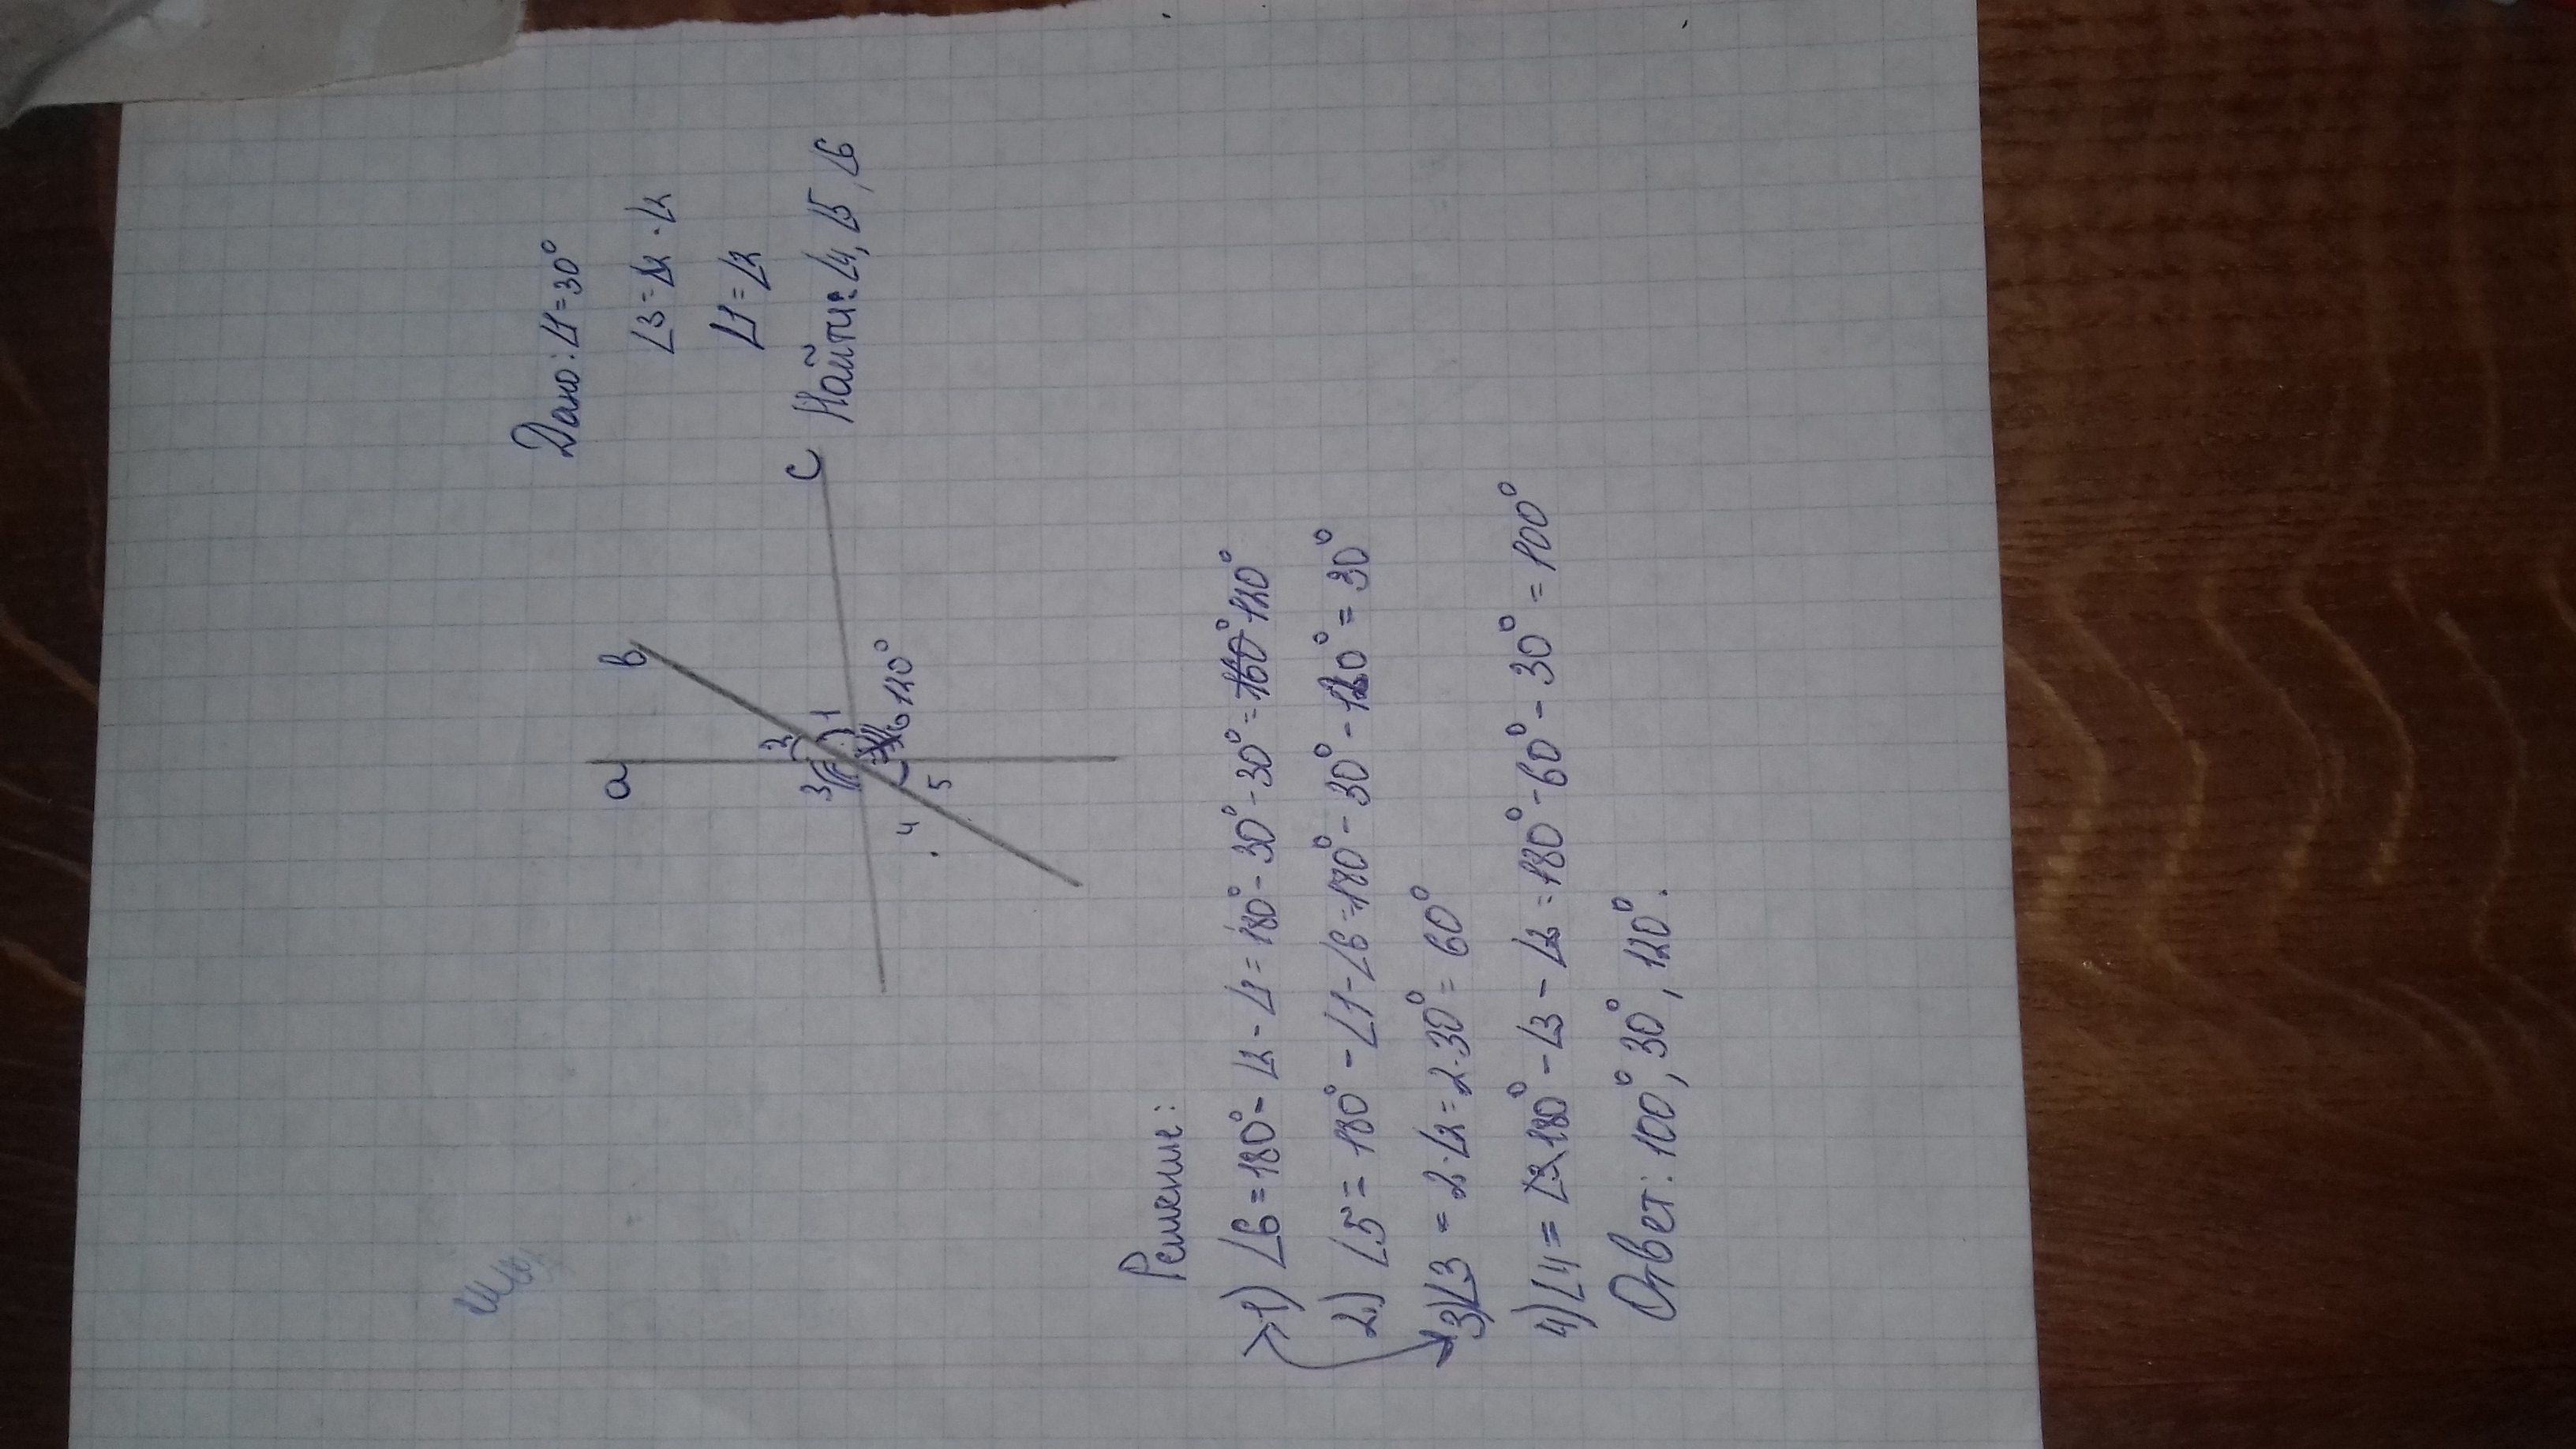 Дано: ∠1=30°
∠3=∠2·∠2
∠1=∠2
Найти: ∠4, ∠5, ∠6
a
b
c
2
1
3
6 120°
4
5
Решение:
1) ∠6=180°-∠2-∠1=180°-30°-30°=160° 120°
2) ∠5=180°-∠1-∠6=180°-30°-120°=30°
3) ∠3=2·∠2=2·30°=60°
4) ∠4=∠2 180°-∠3-∠2=180°-60°-30°=100°
Ответ: 100°, 30°, 120°.